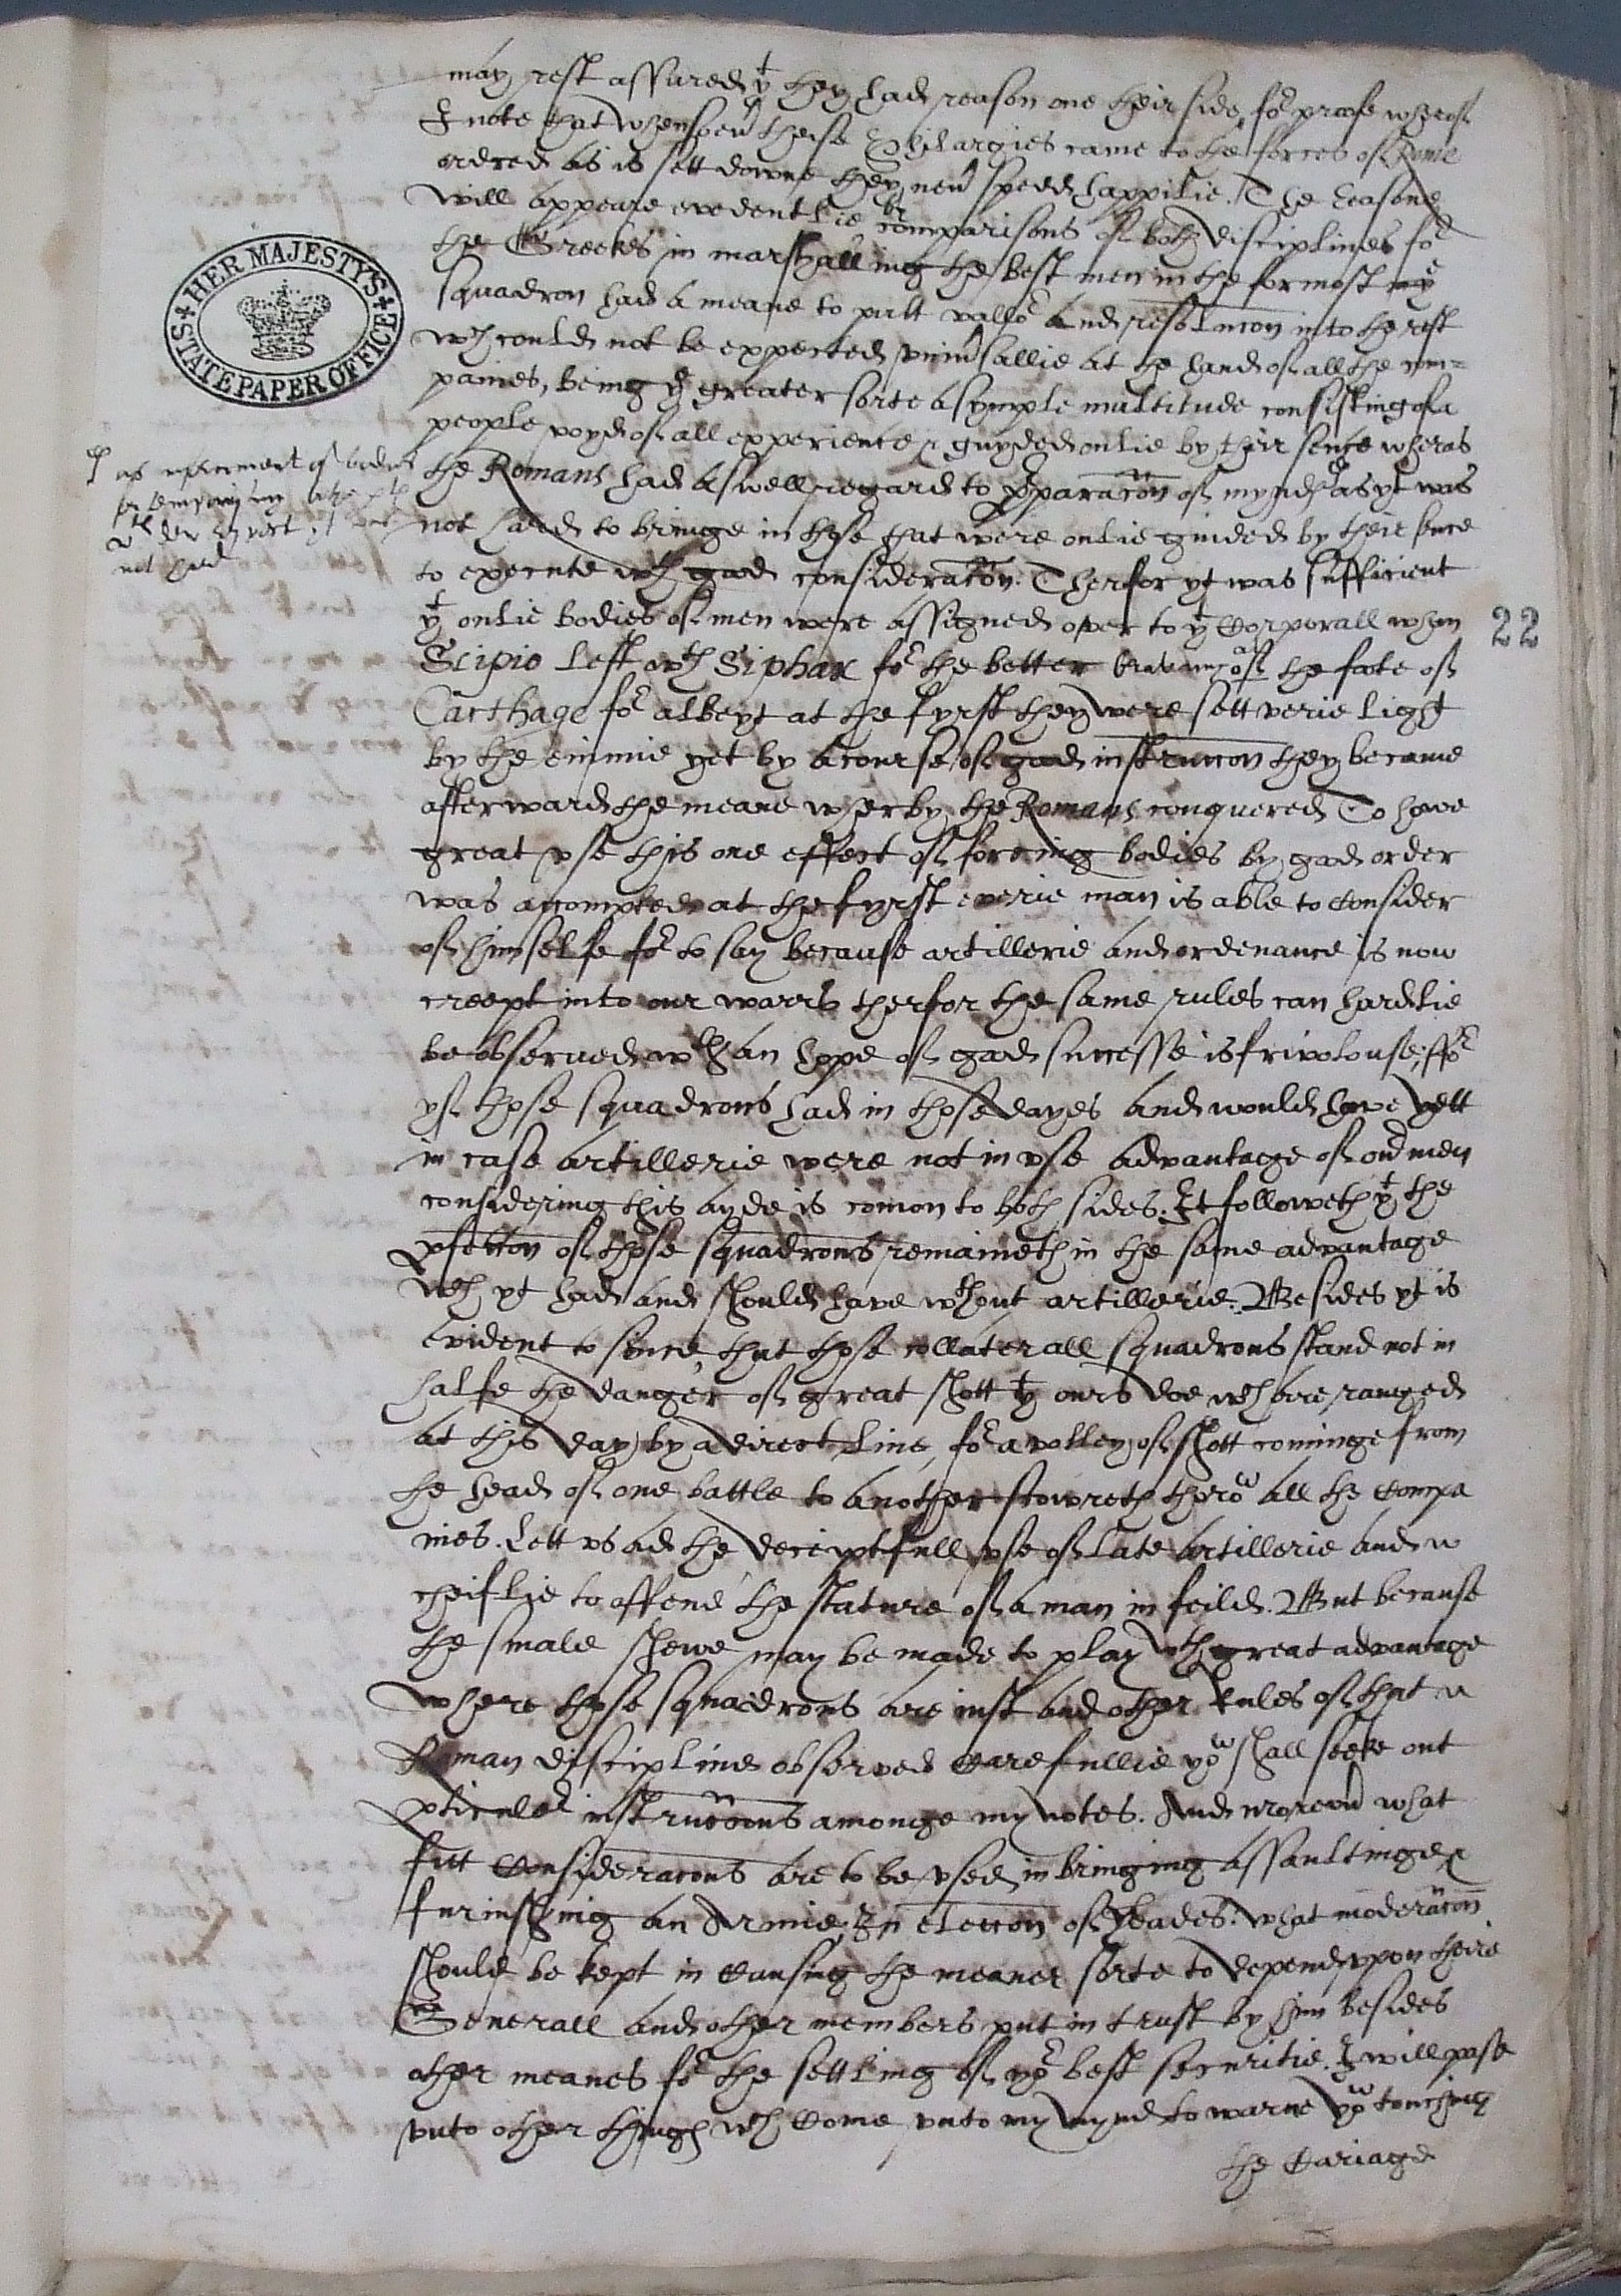 may rest assured yt they had reason one their side, for proofe wherof
I note that whensoeuer these Chiliargies came to the forces of Rome
ordred as is sett downe they neuer spedd happilie. The Reasone
will appeare evedentlie by comparisons of both disciplines for
the Greekes in marshalling the best men in the formost
squadron had a meane to putt vallor and resolucon into the rest
wch could not be expected vniuersallie at the hand of all the com=
panies, being the greater sorte a symple multitude consisting of a
people voyd of all experience & guyded onlie by their sence wheras
the Romans had aswell regard to preparacon of mynd as yt was
not hard to bringe in those that were onlie guided by their sence
to execute wth good consideracon. Therfor yt was sufficient
yt onlie bodies of men were assigned over to yt Corporall whom
Scipio left wth Siphax for the better of the fate of
Carthage for albeyt at the fyrst they were sett verie light
by the enimie yet by a course of good instruccon they became
afterward the meane wherby the Romans conquered To howe
great vse this one effect of forming bodies by good order
was accompted at the fyrst everie man is able to consider
of himselfe for to say because artillerie and ordenance is now
creept into our warrs therfor the same rules can hardlie
be observed wth an hope of good successe is frivolouse, ffor
yf those squadrons had in those dayes and would have yett
in case artillerie were not in vse advantage of our men
considering this ayde is comon to both sides. It followeth yt the
perfeccon of those squadrons remaineth in the same advantage
wch yt had and should have wthout artillerie. Besides yt is
evident to sence, that those collaterall squadrons stand not in
halfe the danger of great shott yt ours doe wch are ranged
at this day by a direct line, for a volley of shott cominge from
the head of one battle to another skowreth throw all the compa
nies. Lett vs ad the deceiptfull vse of late artillerie and
cheiflie to offend the stature of a man in feild. But because
the smale shewe may be made to play wth great advantage
where those squadrons are iust and other Rules of that
Roman discipline observed Carefullie yow shall seeke out
perticuler instruccons amonge my notes. And moreouer what
fitt Consideracons are to be vsed in bringing assaultinge &
furnishing an Armie, In eleccon of Heades. what moderacon
should be kept in Causing the meaner sorte to depend vpon their
Generall and other members put in trust by him besides
other meanes for the settling of yor best securitie. I will pase
vnto other things wch Come vnto my mynd to warne yow touching
the Cariage
not hard
HER MAJESTY'S
STATE PAPER OFFICE
22